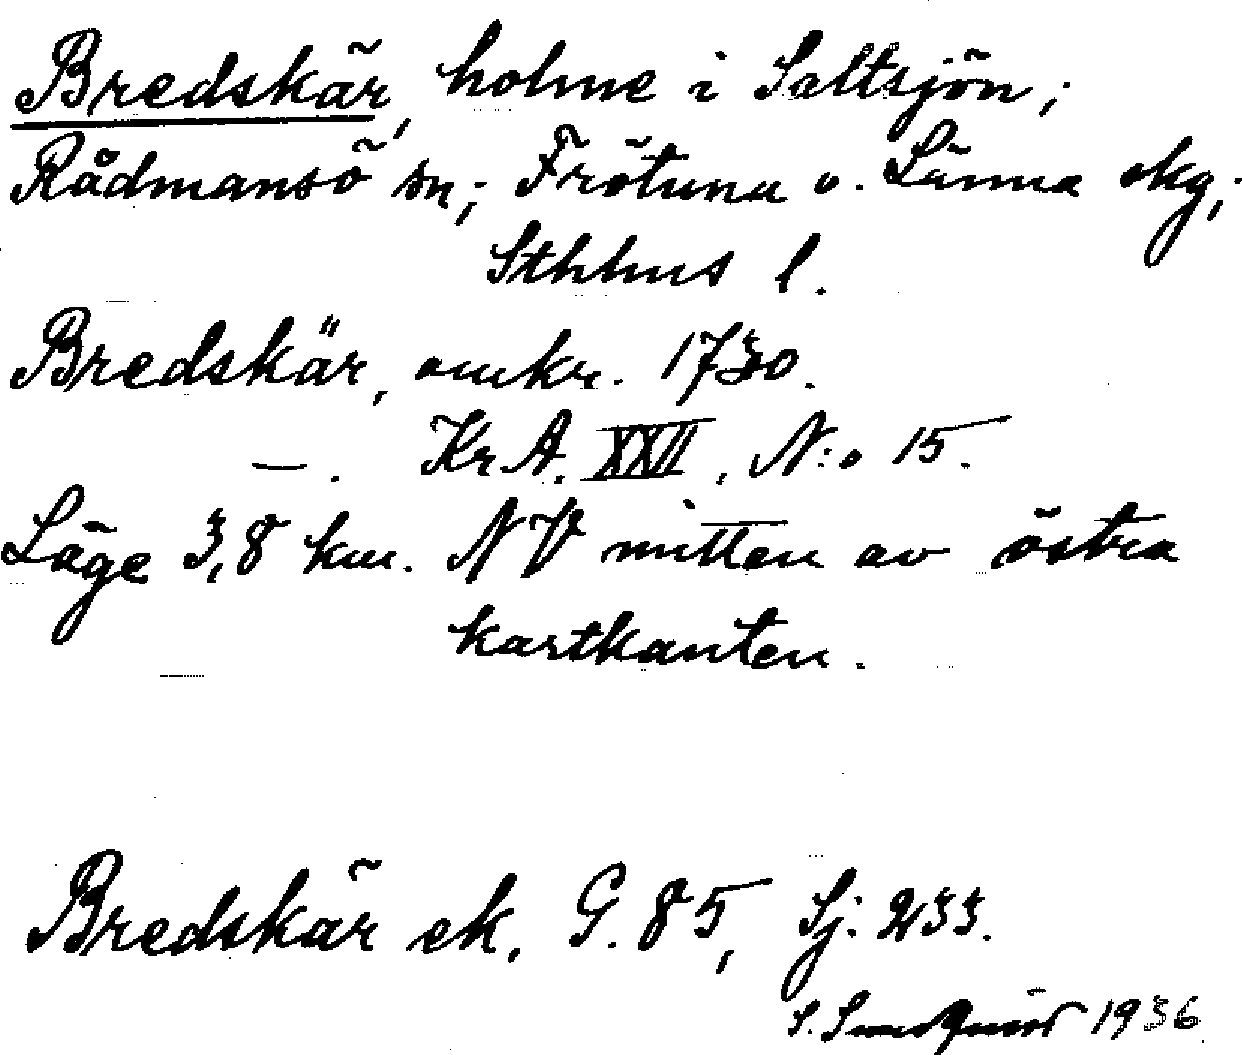 Bredskär, holme i Saltsjön;
Rådmansö sn; Frötuna o. Länna skg;
Sthlms l.
Bredskär, omkr. 1730.
—. Kr.A. XXII, N:o 15.
Läge 3,8 km. NV mitten av östra
kartkanten.
Bredskär ek. G. 85, Sj: 233.
S. Sundquist 1936